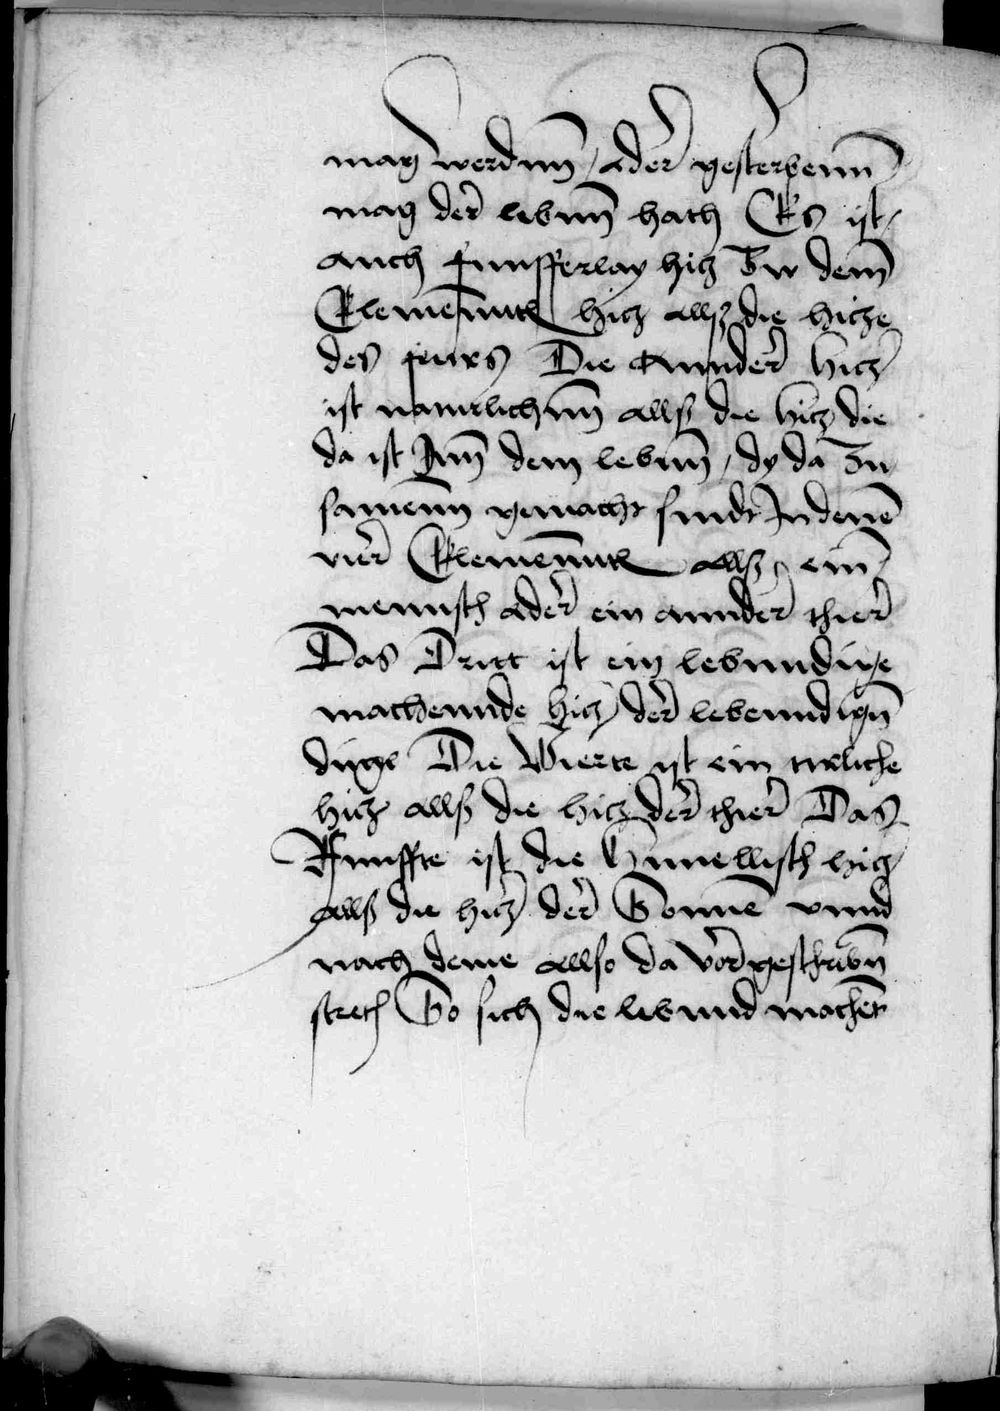 mag werdnn / oder gesterbenn
mag der lebnn hath Es ist /
auch funfferlay hicz Zw dem
Elemenntl hicz allß die hicze
des feurs Die annder hicz
ist naturlichnn allß die hicz die
da ist Inn dem lebnn / dy da Zu
samenn gemacht sindt In denē
vier Elemenntl allß ein
mennsch oder ein annder thier
Das Dritt ist ein lebnndige
machennde hicz der lebenndign
dinge Die Vierte ist ein tirliche
hicz allß die hicz der thier Das
Funffte ist die himellisch hicz
allß die hicz der Sonnē vnnd
nach deme allso da vorgeschribn
steth So sich die lebnnd machet